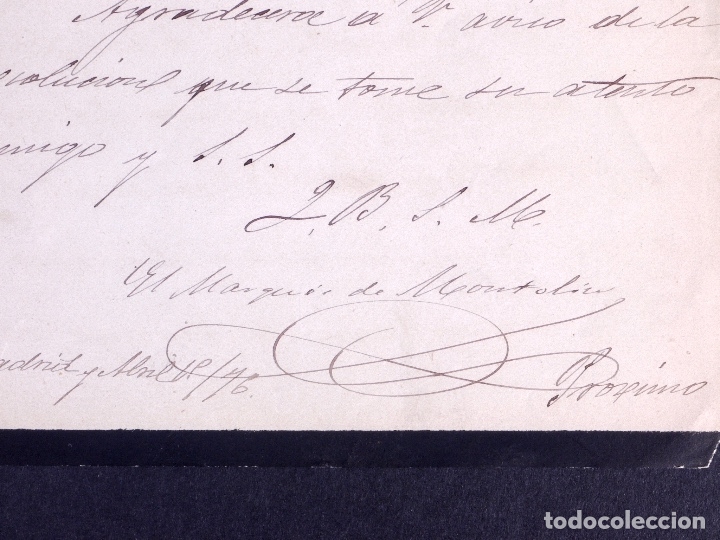 Agradecere a V. aviso de la
esolucion que se tome su atento
migo y S. S.
Q. B. S. M.
El Marques de Montoliu
adrid y Abril /76 Proximo
todocoleccion
todocoleccion.net